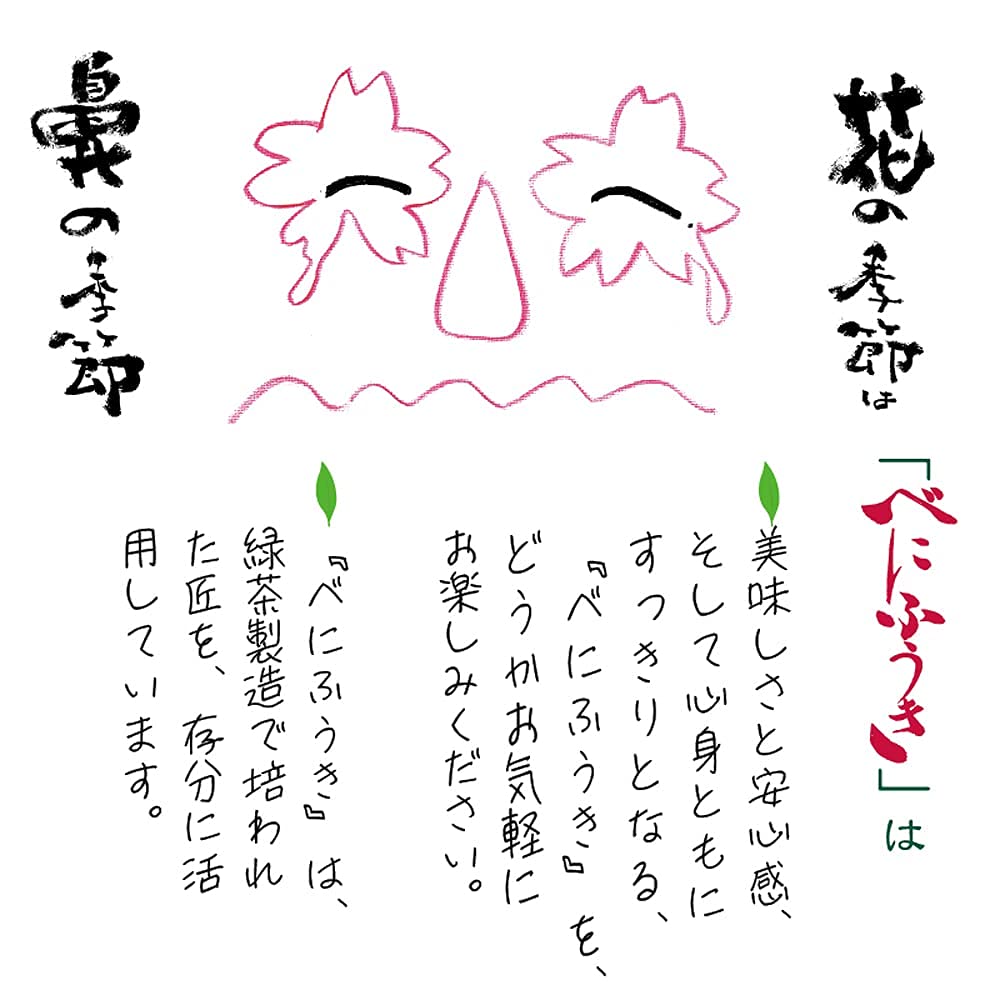 花の季節は
鼻の季節
「べにふうき」は
美味しさと安心感、
そして心身ともに
すっきりとなる、
『べにふうき』を、
どうかお気軽に
お楽しみください。
『べにふうき』は、
緑茶製造で培われ
た匠を、存分に活
用しています。